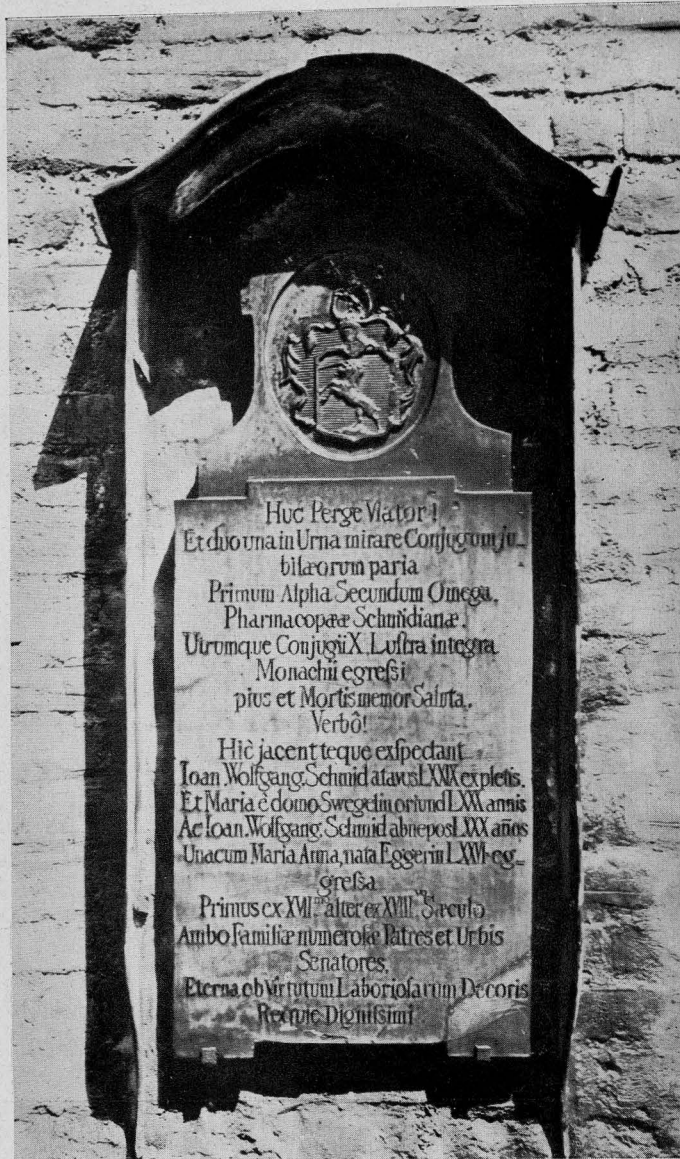 Huc Perge Viator!
Et duo una in Urna mirare Conjugum ju_
bilæorum paria
Primum Alpha Secundum Omega.
Pharmacopææ Schmidianæ.
Utrumque Conjugii X. Lustra integra
Monachii egressi
pius et Mortis memor Saluta.
Verbô!
Hîc jacent teque exspectant
Ioan. Wolfgang. Schmid atavus LXXIX expletis.
Et Maria è domo Swegelin oriund LXX annis
Ac Ioan. Wolfgang. Schmid abnepos LXXX años
Unacum Maria Anna, nata Eggerin LXXVI eg_
gressa
Primus ex XVII.mo alter ex XVIII.vo Sæculo
Ambo Familiæ numerosæ Patres et Urbis
Senatores.
Eterna ob Virtutum Laboriosarum Decoris
Requie Dignissimi